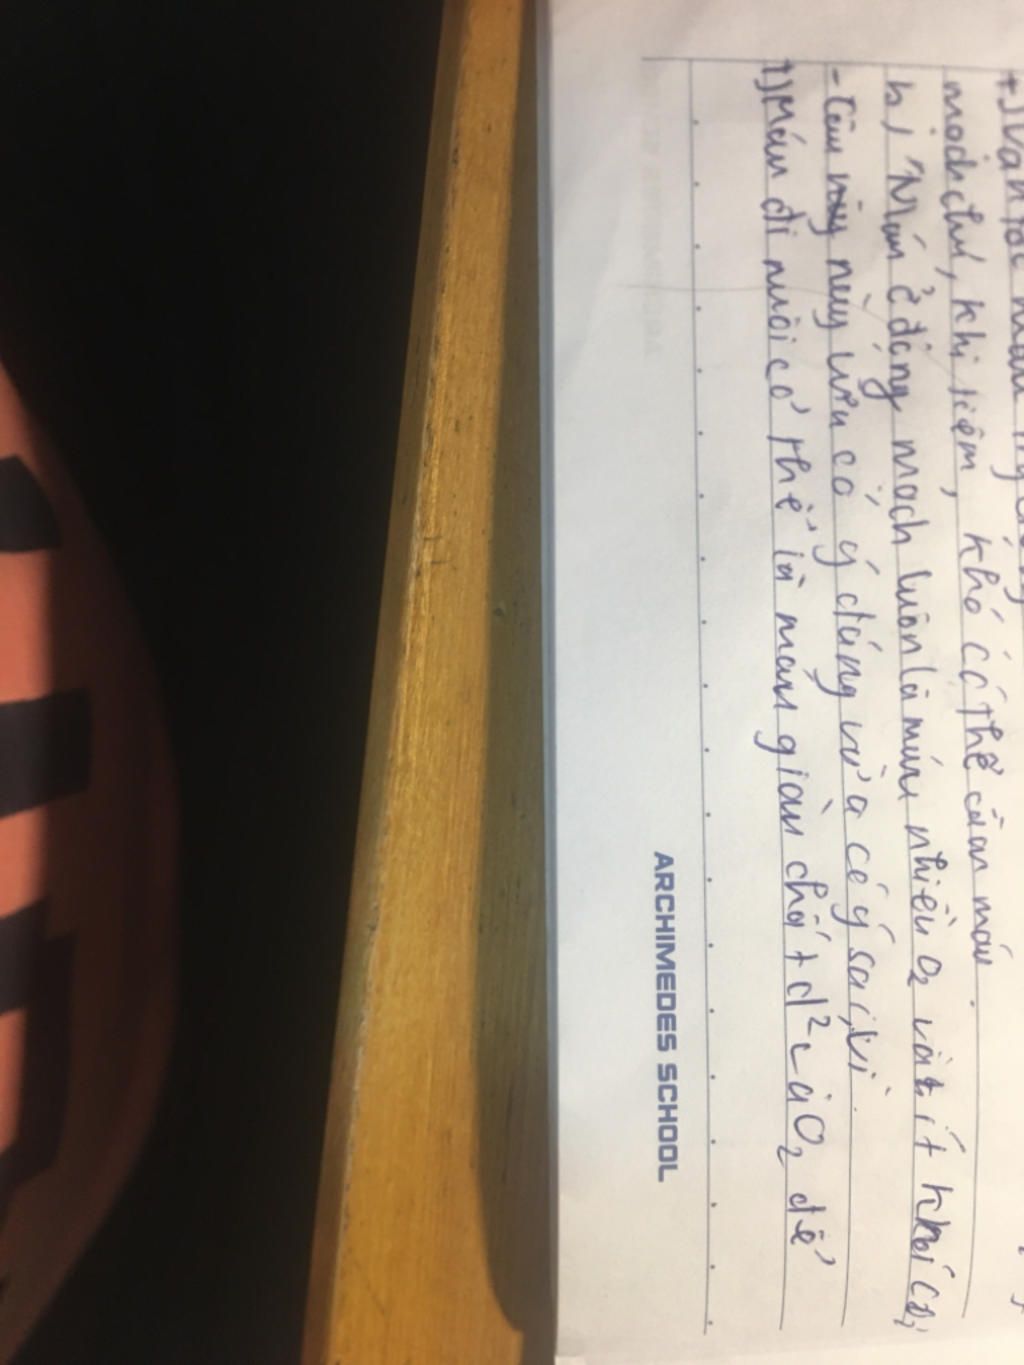 +) Vận tốc máu
mạch chủ, khi tiêm, khó có thể cầm máu.
b, "Máu ở động mạch luôn là máu nhiều O₂ và ít khí CO₂
- Câu này vừa có ý đúng vừa có ý sai, vì
+) Máu đi nuôi cơ thể là máu giàu chất d² và O₂ để
ARCHIMEDES SCHOOL